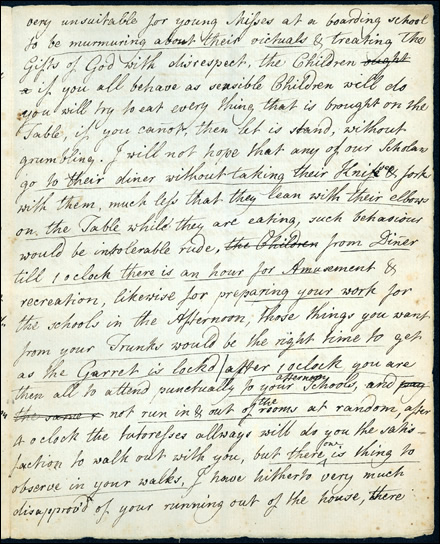 very unsuitable for young Misses at a boarding school
to be murmuring about their victuals & treating the
Gifts of God with disrespect, the Children ought
if you all behave as sensible Children will do
you will try to eat every thing, that is brought on the
Table, if you canot, then let is stand, without
grumbling. I will not hope that any of our Scholars
go to their diner without taking their Knives & fork
with them, much less that they lean with their elbows
on the Table while they are eating, such behaviour
would be intolerable rude, the Children from Diner
till 1 oclock there is an hour for Amusement &
recreation, likewise for preparing your work for
the schools in the Afternoon, those things you want
from your Trunks would be the right time to get
as the Garret is lockd, after 1 oclock you are
then all to attend punctually to your afternoon Schools, and
the same & not run in & out of the rooms at random, after
4 oclock the tutoresses allways will do you the satis-
faction to walk out with you, but there is one thing to
observe in your walks, I have hitherto very much
disapprov'd of your running out of the house, there